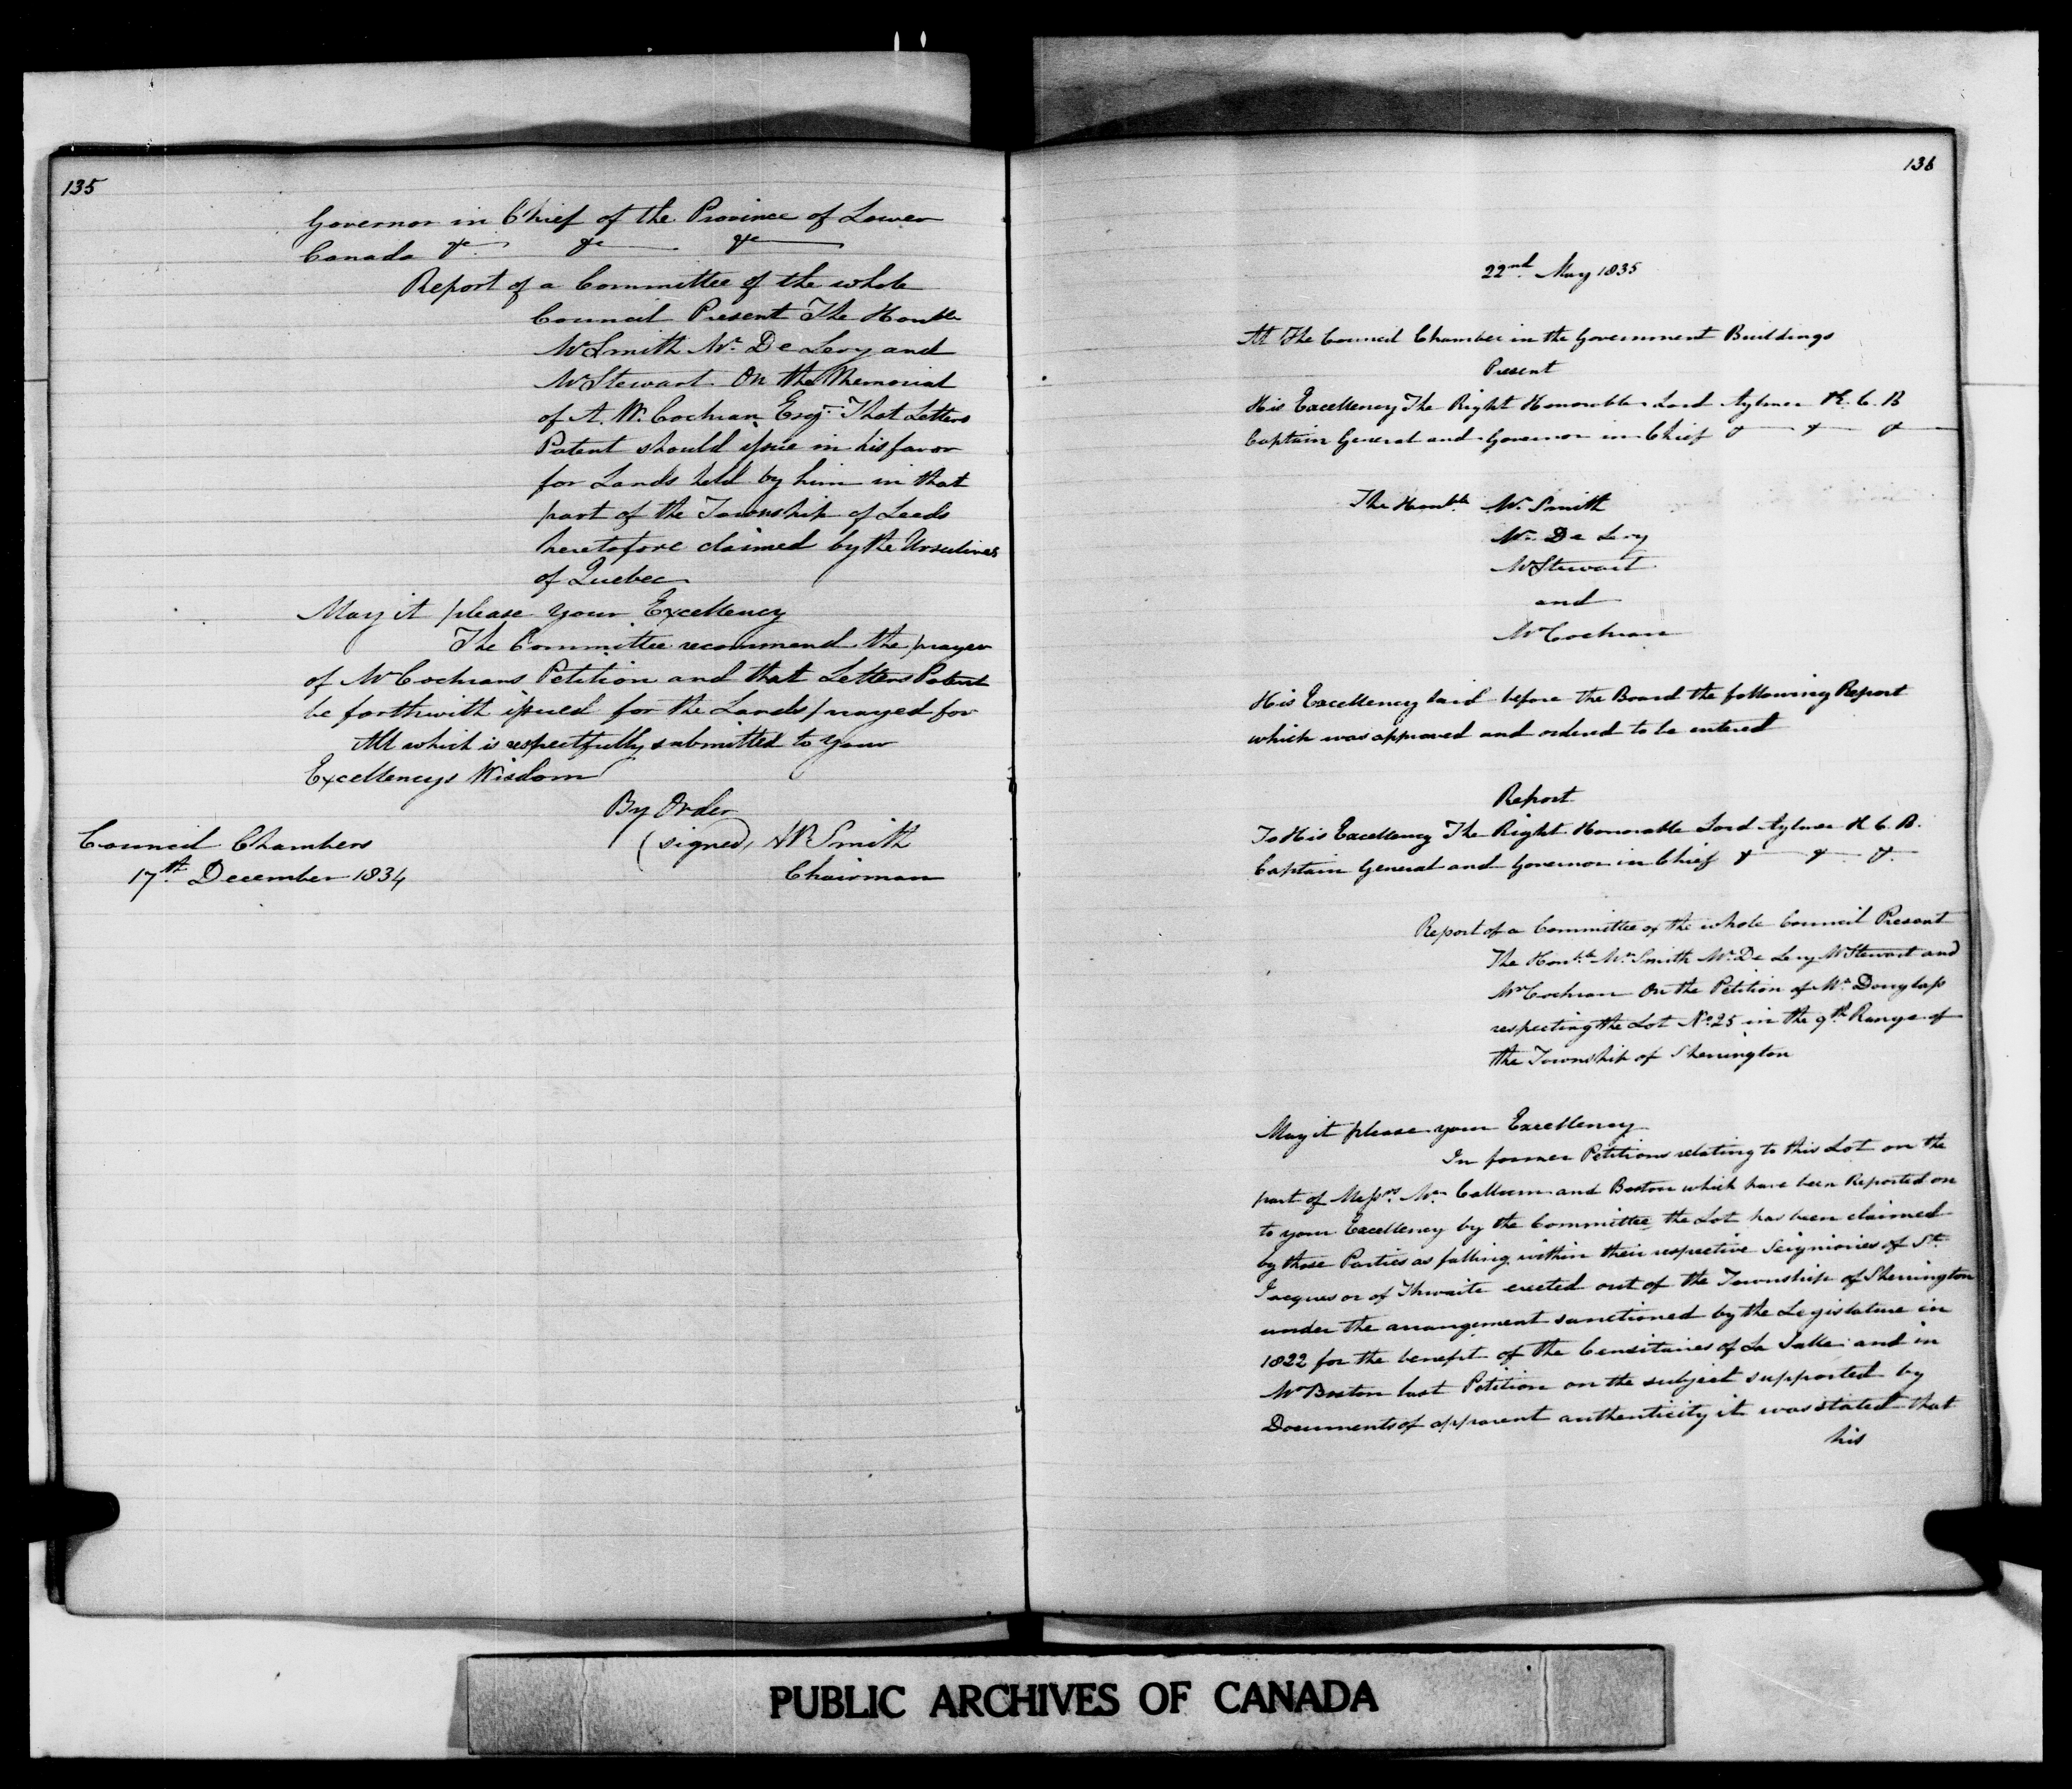 135
Governor in Chief of the Province of Lower
Canada &c &c &c
Report of a Committee of the whole
Council Present The Honble
Mr Smith Mr. De Lery and
Mr Stewart On the Memorial
of A. W. Cochran Esqr. That Letters
Patent should issue in his favor
for Lands held by him in that
part of the Township of Leeds
heretofore claimed by the Ursulines
of Quebec
May it please your Excellency
The Committee recommend the prayer
of Mr Cochrans Petition and that Letters Patent
be forthwith issued for the Lands prayed for
All which is respectfully submitted to your
Excellencys Wisdom
By Order
(signed) Smith
Chairman
Council Chambers
17th December 1834
136
22nd May 1835
At The Council Chamber in the Government Buildings
Present
His Excellency The Right Honorable Lord Aylmer K. C. B
Captain General and Governor in Chief & & &
The Honble Mr. Smith
Mr. De Lery
Mr Stewart
and
Mr Cochran
His Excellency laid before the Board the following Report
which was approved and ordered to be entered
Report
To His Excellency The Right Honorable Lord Aylmer K C B.
Captain General and Governor in Chief & & &.
Report of a Committee of the whole Council Present
The Honble Mr. Smith Mr. De Lery Mr Stewart and
Mr Cochran On the Petition of Mr. Douglass
respecting the Lot No 25 in the 9th Range of
the Township of Sherrington
May it please your Excellency
In former Petitions relating to this Lot on the
part of Messrs. Mc Callum and Boston which have been Reported on
to your Excellency by the Committee the Lot has been claimed
by those Parties as falling within their respective Seigniories of St.
Jacques or of Thwaite erected out of the Township of Sherrington
under the arrangement sanctioned by the Legislature in
1822 for the benefit of the Censitaires of La Salle and in
Mr Boston last Petition on the subject supported by
Documents of apparent authenticity it was stated that
his
PUBLIC ARCHIVES OF CANADA